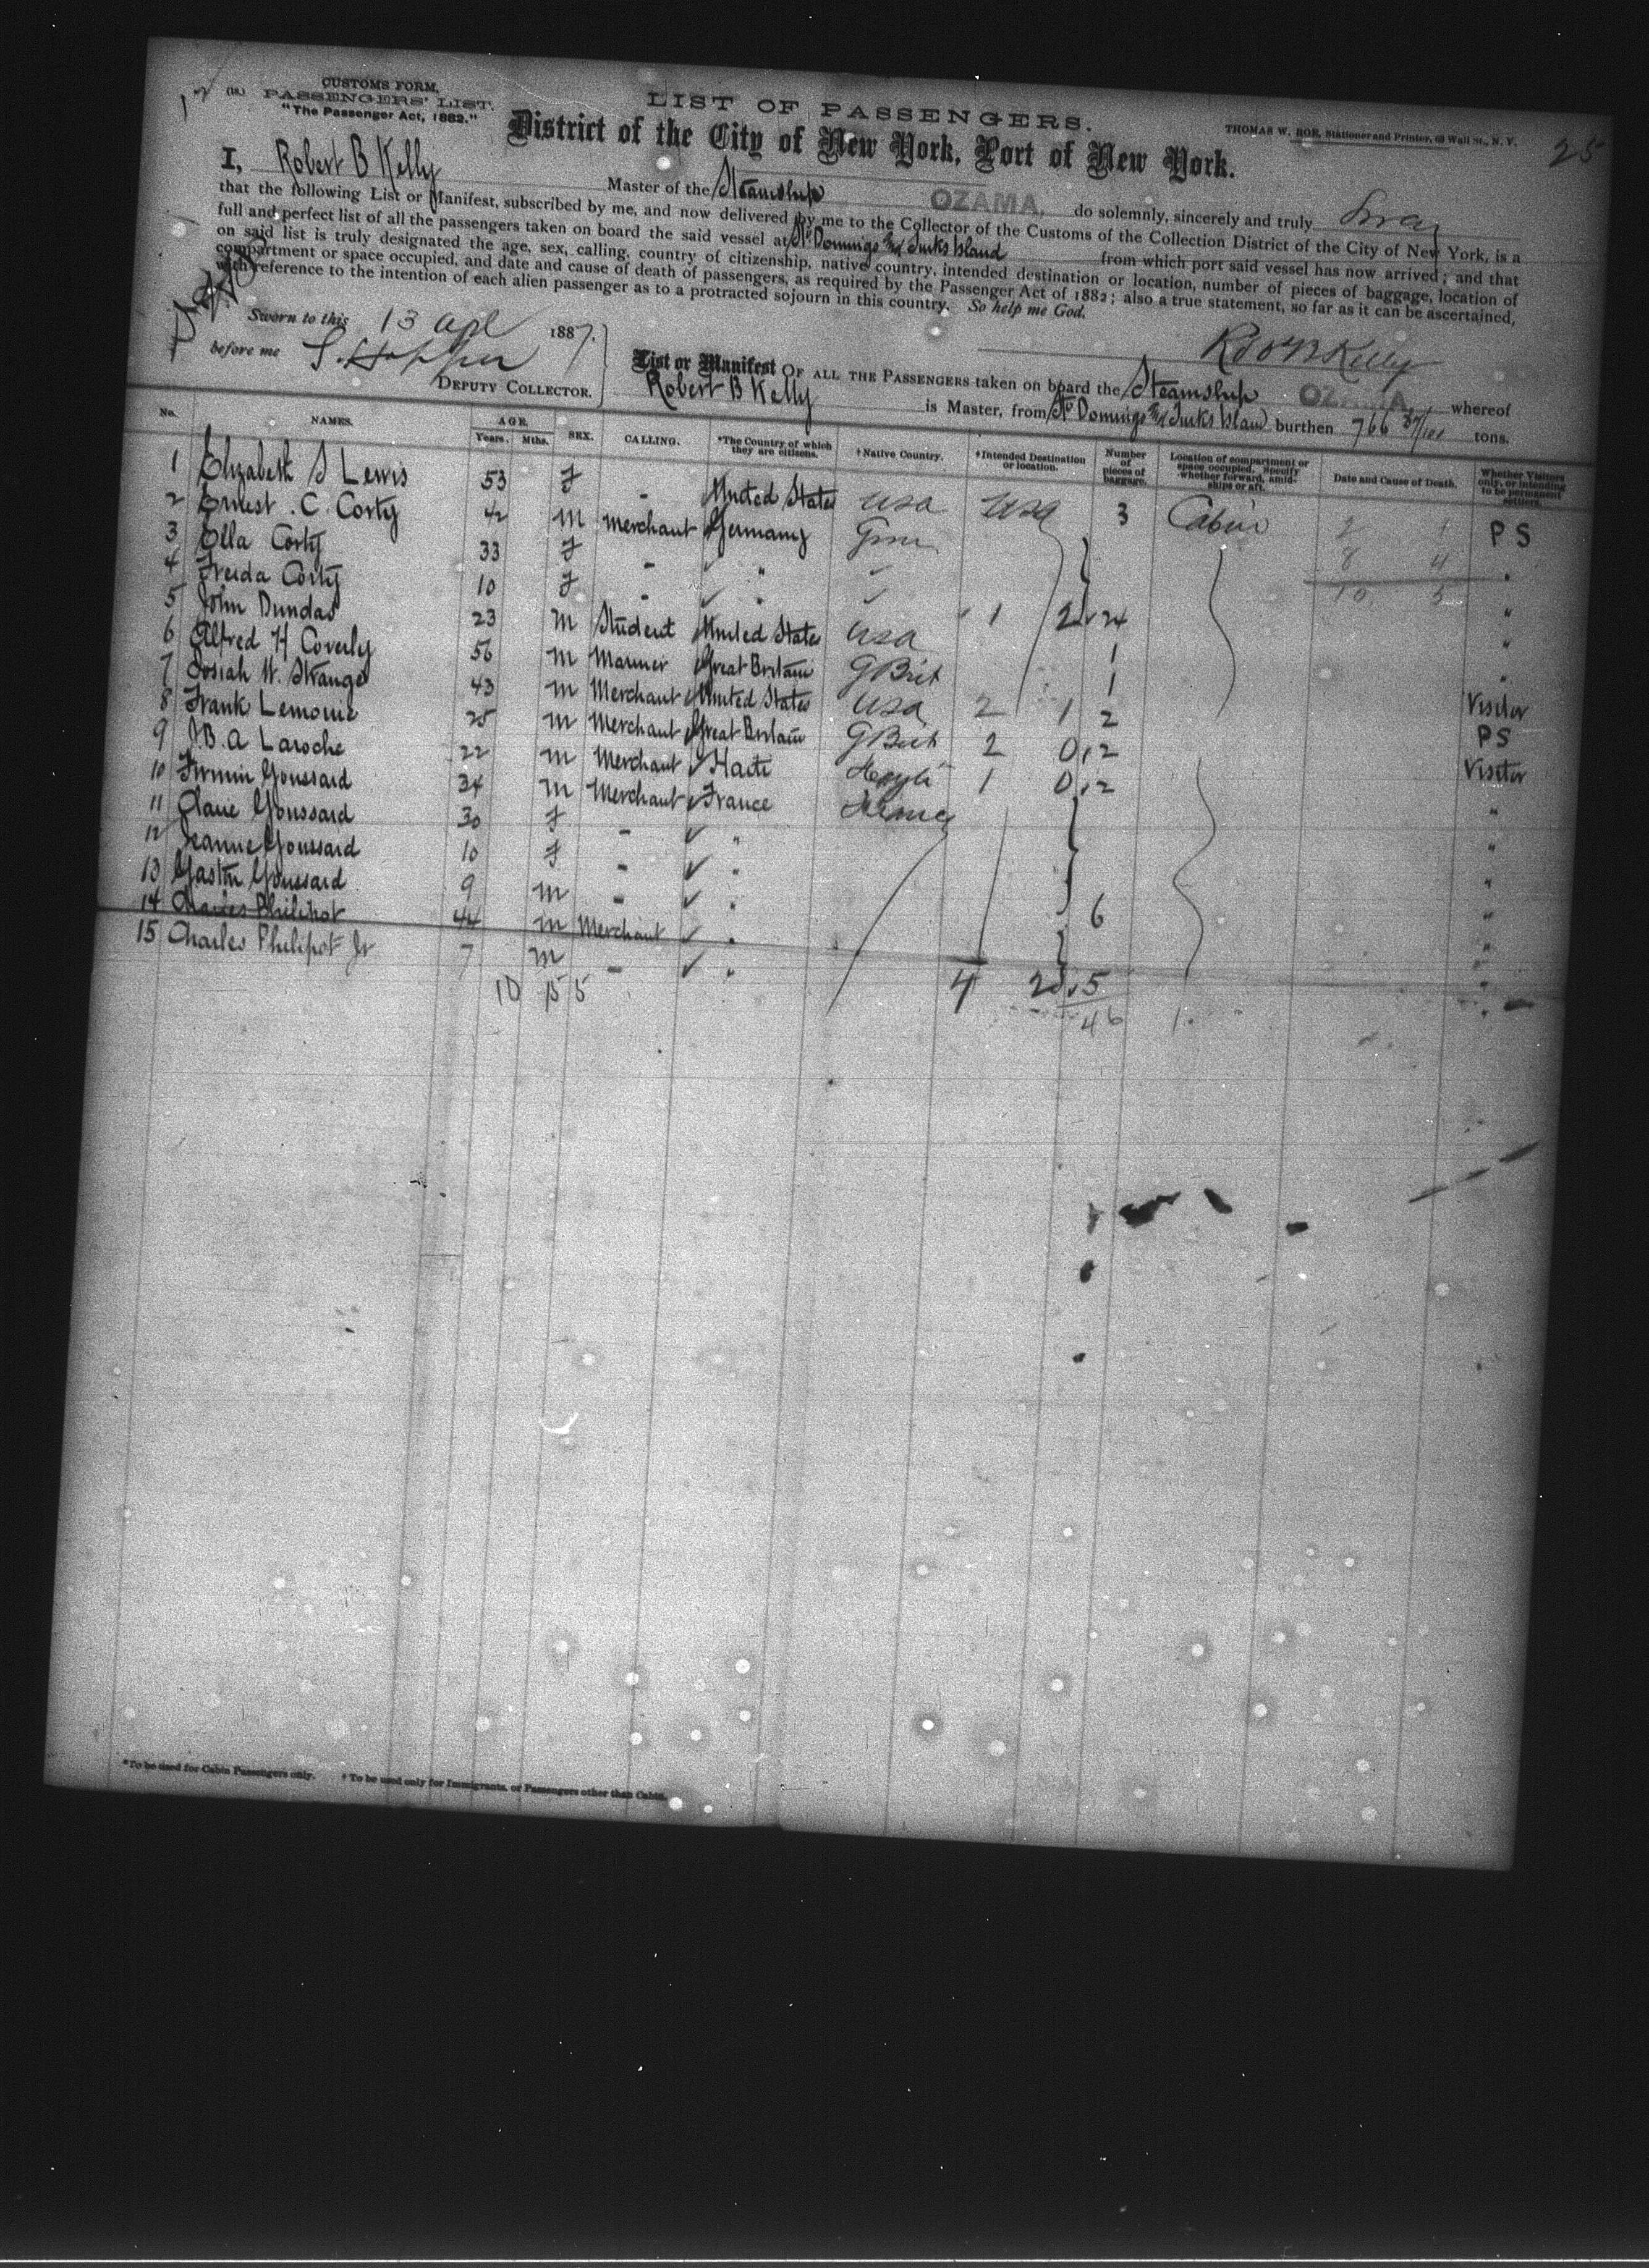 25
(18.) CUSTOMS FORM,
PASSENGERS' LIST.
"The Passenger Act, 1882."
LIST OF PASSENGERS.
THOMAS W. ROE, Stationer and Printer, 63 Wall St., N. Y.
District of the City of New York, Port of New York.
I, Robert B Kelly Master of the Steamship OZAMA, do solemnly, sincerely and truly Swear
that the following List or Manifest, subscribed by me, and now delivered by me to the Collector of the Customs of the Collection District of the City of New York, is a
full and perfect list of all the passengers taken on board the said vessel at St Domingo and Turks Island from which port said vessel has now arrived; and that
on said list is truly designated the age, sex, calling, country of citizenship, native country, intended destination or location, number of pieces of baggage, location of
compartment or space occupied, and date and cause of death of passengers, as required by the Passenger Act of 1882; also a true statement, so far as it can be ascertained,
with reference to the intention of each alien passenger as to a protracted sojourn in this country. So help me God.
Sworn to this 13 apl 1887.
Rob B Kelly
before me S. Hopper
DEPUTY COLLECTOR.
List or Manifest OF ALL THE PASSENGERS taken on board the Steamship OZAMA whereof
Robert B Kelly is Master, from St Domingo and Turks Island burthen 766 37/100 tons.
No. NAMES. AGE. Years. Mths. SEX. CALLING. *The Country of which they are citizens. †Native Country. †Intended Destination or location. Number of pieces of baggage. Location of compartment or space occupied. Specify whether forward, amidships or aft. Date and Cause of Death. Whether Visitors only, or intending to be permanent settlers.
1 Elizabeth S Lewis 53 F - United States USA USA 3 Cabin PS
2 Ernest . C. Corty 42 M Merchant Germany Germ "
3 Ella Corty 33 F - " "
4 Freida Corty 10 F - " 1 2 24 "
5 John Dundas 23 M Student United States USA 1 "
6 Alfred H Coverly 56 M Mariner Great Britain G Brit 1 Visitor
7 Josiah W. Strange 43 M Merchant United States USA 2 1 2 PS
8 Frank Lemoine 25 M Merchant Great Britain G Brit 2 0 2 Visitor
9 J.B. A Laroche 22 M Merchant Haiti Hayti 1 0 2 "
10 Firmin Goussard 34 M Merchant France France "
11 Claire Goussard 30 F - " "
12 Jeanne Goussard 10 F - " "
13 Gaston Goussard 9 M - " 6 "
14 Charles Philipot 44 M Merchant " "
15 Charles Philipot Jr 7 M - " 4 2 5 "
10 15 5
46
*To be used for Cabin Passengers only. † To be used only for Immigrants, or Passengers other than Cabin.